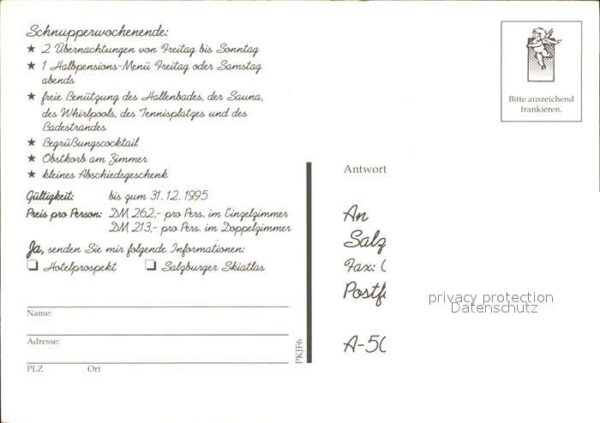 Schnupperwochenende:
★ 2 Übernachtungen von Freitag bis Sonntag
★ 1 Halbpensions-Menü Freitag oder Samstag
abends
★ freie Benützung des Hallenbades, der Sauna,
des Whirlpools, des Tennisplatzes und des
Badestrandes
★ Begrüßungscocktail
★ Obstkorb am Zimmer
★ kleines Abschiedsgeschenk
Gültigkeit: bis zum 31.12.1995
Preis pro Person: DM 262,- pro Pers. im Einzelzimmer
DM 213,- pro Pers. im Doppelzimmer
Ja, senden Sie mir folgende Informationen:
☐ Hotelprospekt ☐ Salzburger Skiatlas
Name:
Adresse:
PLZ Ort
PKJF6
Bitte ausreichend
frankieren.
Antwort
An
Salz
Fax: (
Postf
privacy protection
Datenschutz
A-50